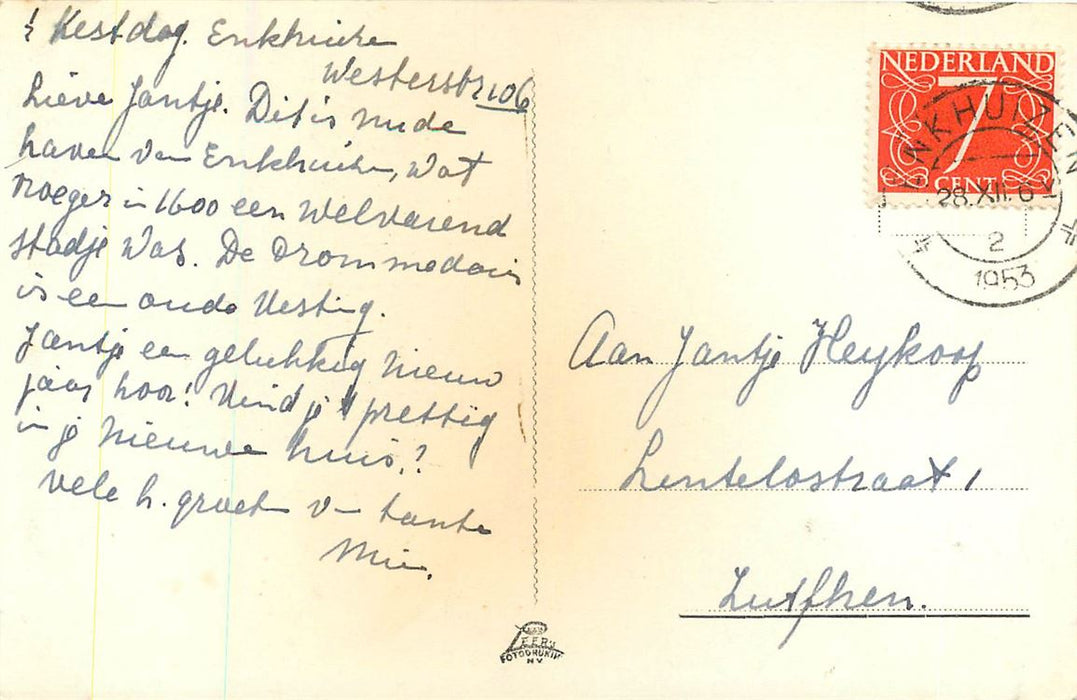 Kestdag. Enkhuize
Westerstr 106
Lieve Jantje. Dit is nu de
haven van Enkhuizen, wat
vroeger in 1600 een welvarend
stadje was. De Drommedaris
is een oude Vesting.
Jantje een gelukkig nieuw
jaar hoor! Vind je 't prettig
in je nieuwe huis?
vele h. groeten v tante
Mie.
NEDERLAND
7
CENT
ENKHUIZEN
28.XII.
2
1953
Aan Jantje Heykoop
Lentelostraat 1
Zutfhen.
FOTODRUK
NV